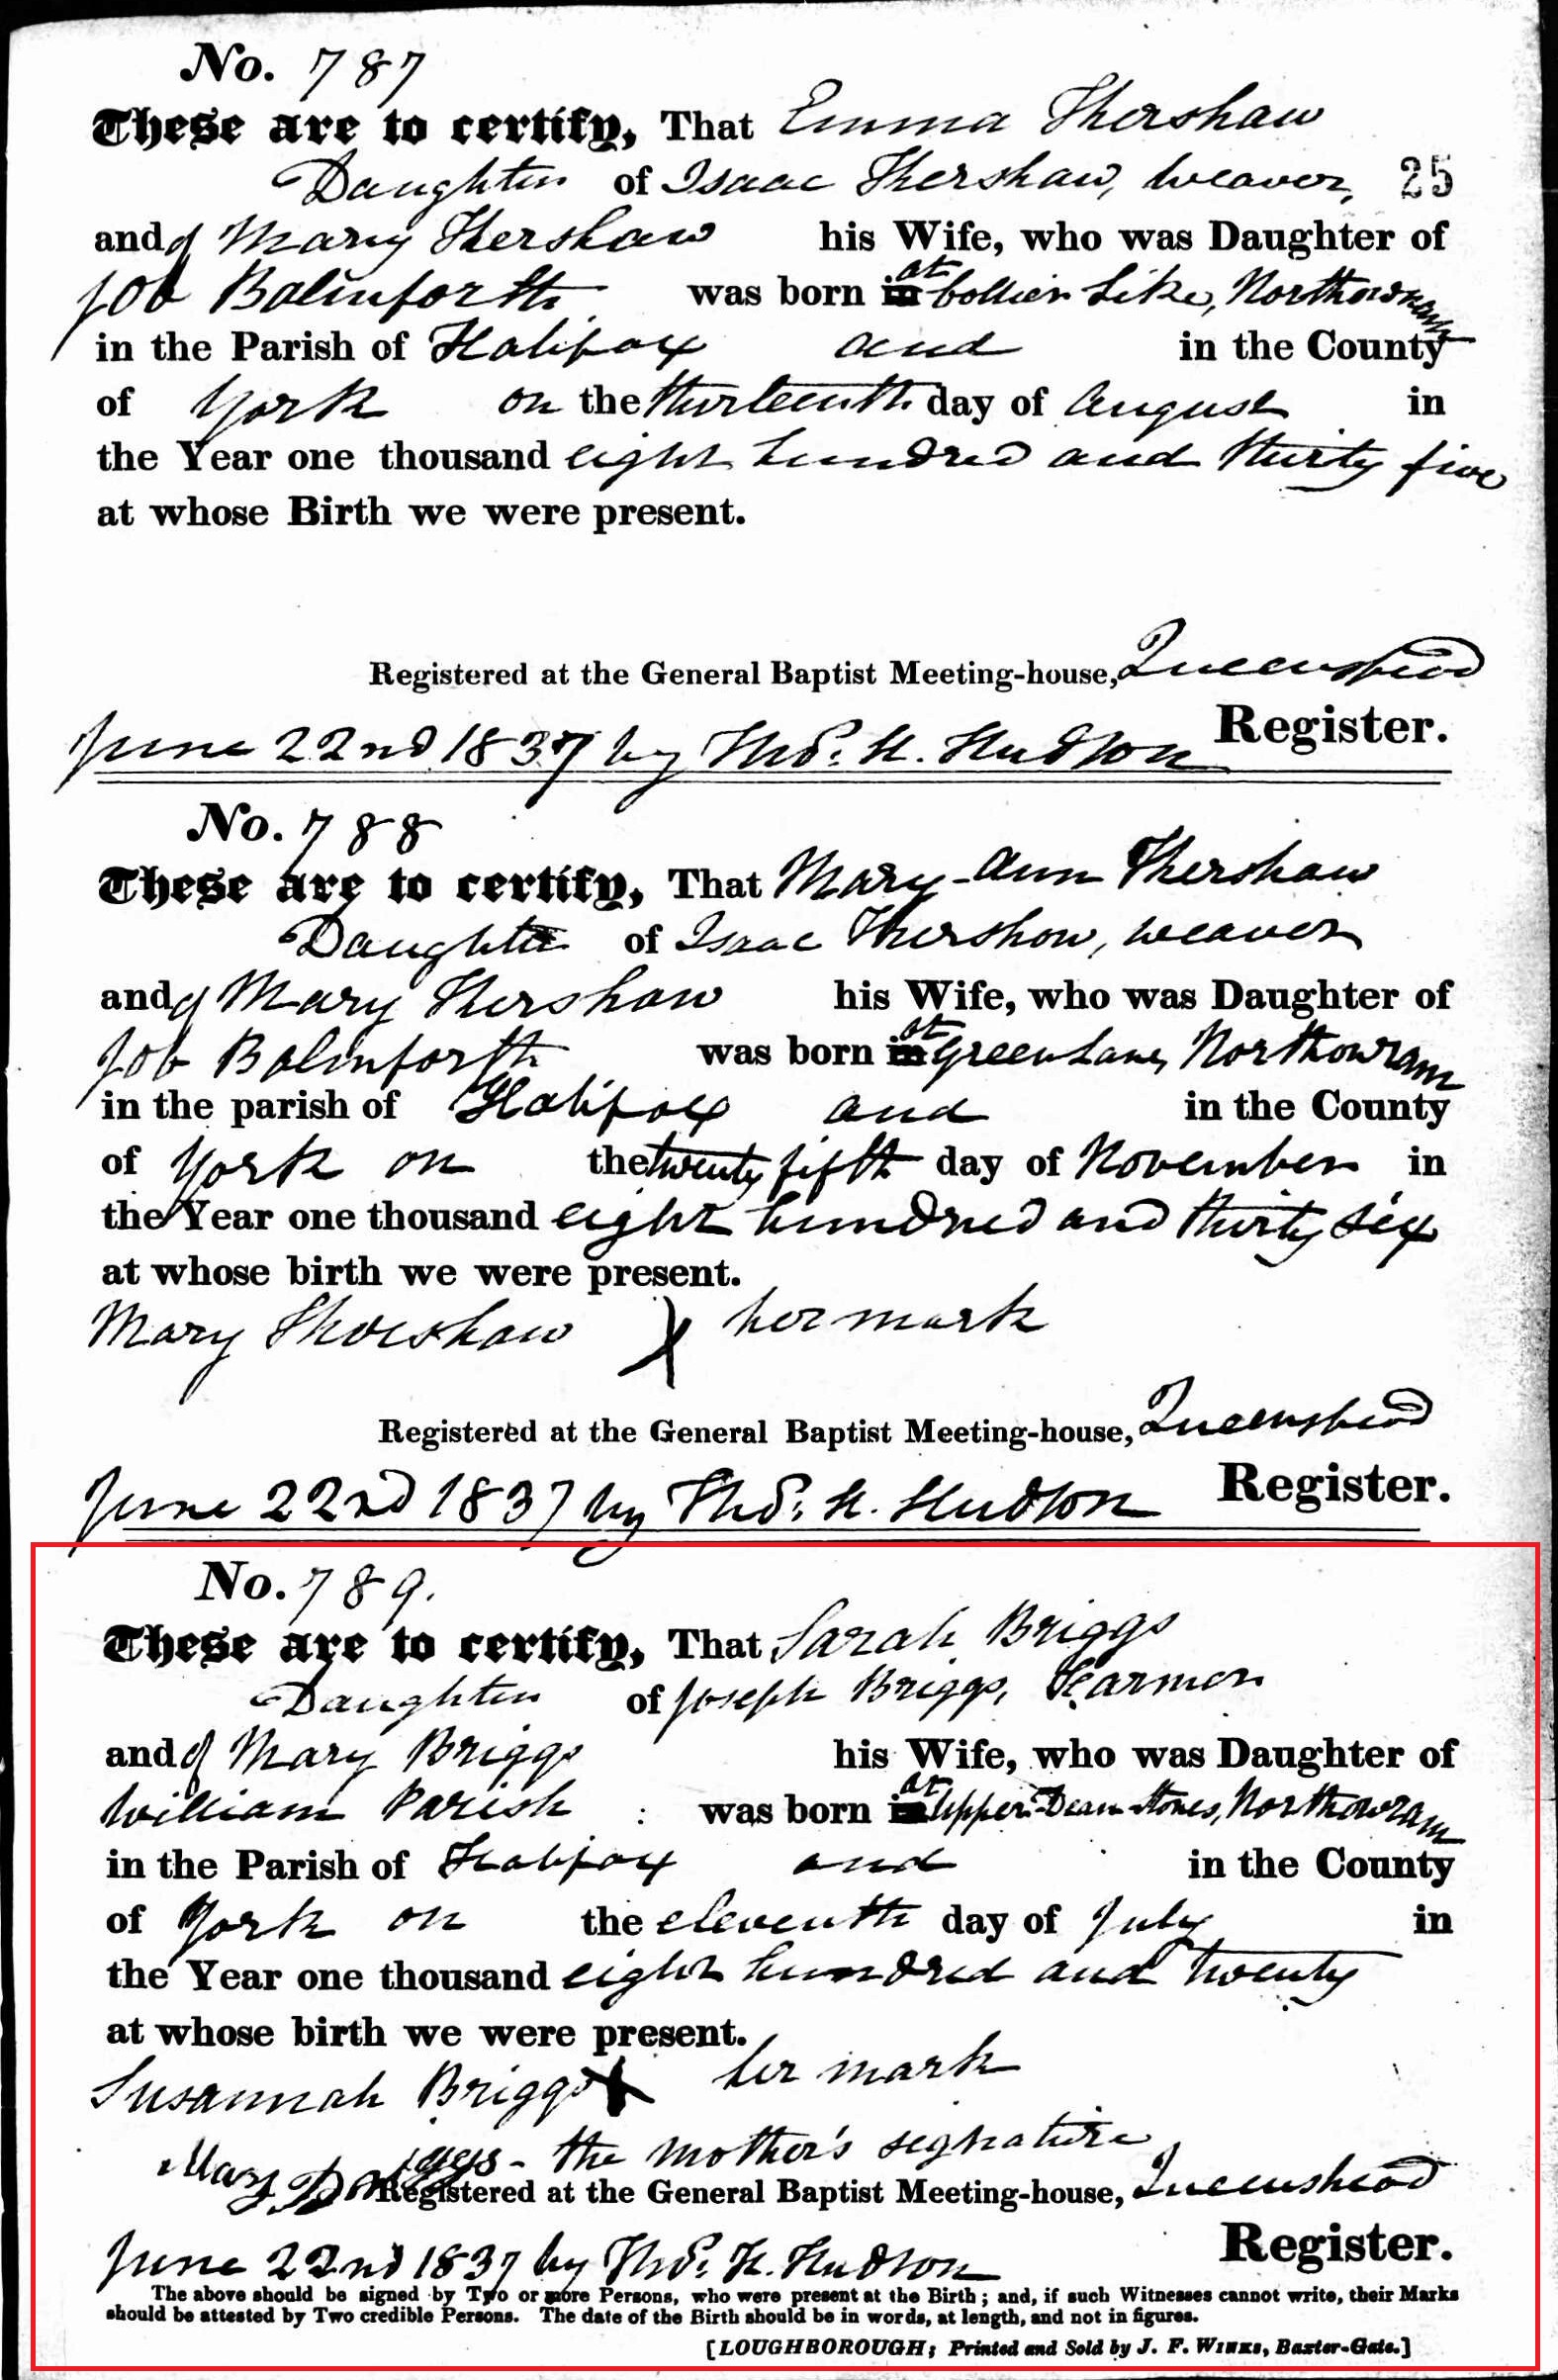 No. 787
These are to certify, That Emma Thershaw
Daughter of Isaac Thershaw, weaver, 25
and of Mary Thershaw his Wife, who was Daughter of
Job Balmforth was born in at Collier Sike, Northowram
in the Parish of Halifax and in the County
of York on the thirteenth day of August in
the Year one thousand eight hundred and thirty five
at whose Birth we were present.
Registered at the General Baptist Meeting-house, Queenshead
June 22nd 1837 by Thos. H. Hudson Register.
No. 788
These are to certify, That Mary-Ann Thershaw
Daughter of Isaac Thershaw, weaver
and of Mary Thershaw his Wife, who was Daughter of
Job Balmforth was born in at Green Lane, Northowram
in the parish of Halifax and in the County
of York on the twenty fifth day of November in
the Year one thousand eight hundred and thirty six
at whose birth we were present.
Mary Thershaw X her mark
Registered at the General Baptist Meeting-house, Queenshead
June 22nd 1837 by Thos. H. Hudson Register.
No. 789.
These are to certify, That Sarah Briggs
Daughter of Joseph Briggs, Farmer
and of Mary Briggs his Wife, who was Daughter of
William Parish was born in at Upper-Dean-Stones, Northowram
in the Parish of Halifax and in the County
of York on the eleventh day of July in
the Year one thousand eight hundred and twenty
at whose birth we were present.
Susannah Briggs X her mark
Mary Briggs - the mother's signature
Registered at the General Baptist Meeting-house, Queenshead
June 22nd 1837 by Thos. H. Hudson Register.
The above should be signed by Two or more Persons, who were present at the Birth; and, if such Witnesses cannot write, their Marks
should be attested by Two credible Persons. The date of the Birth should be in words, at length, and not in figures.
[LOUGHBOROUGH; Printed and Sold by J. F. WINKS, Baxter-Gate.]